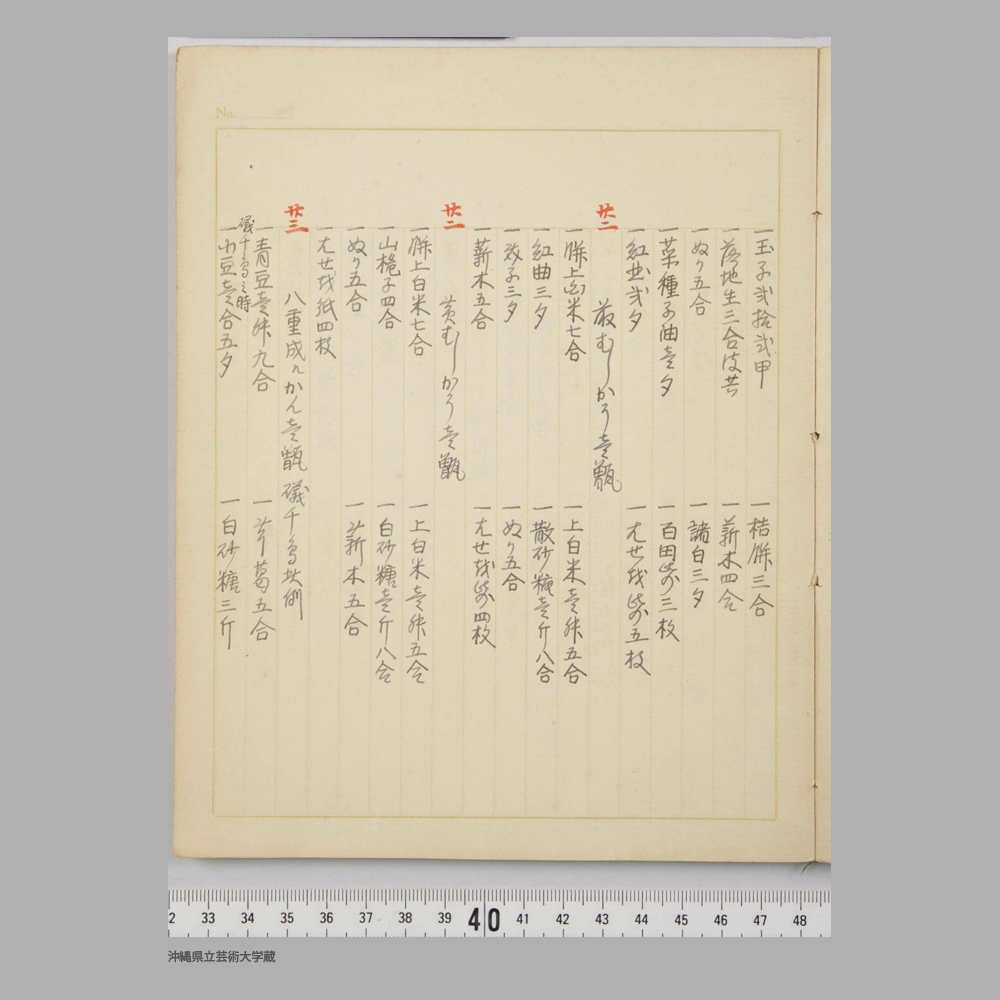 No.
一 玉子弐拾弐甲 一 桔餅三合
一 落地生三合 一 薪木四合
一 ぬり五合 一 諸白三夕
一 菜種子油壱夕 一 百田紙三枚
一 紅曲弐夕 一 五枚
廿二 むしかう壱甑
一 餅上白米七合 一 上白米壱舛五合
一 紅曲三夕 一 散砂糖壱斤八合
一 子三夕 一 ぬり五合
一 薪木五合 一 四枚
廿二 黄むしかう壱甑
一 餅上白米七合 一 上白米壱舛五合
一 山梔子四合 一 白砂糖壱斤八合
一 ぬり五合 一 薪木五合
一 紙四枚
廿三 八重成ルかん壱甑 礒千鳥此例
一 青豆壱舛九合 一 葛五合
礒千鳥之時
一 小豆壱合五夕 一 白砂糖三斤
32 33 34 35 36 37 38 39 40 41 42 43 44 45 46 47 48
沖縄県立芸術大学蔵